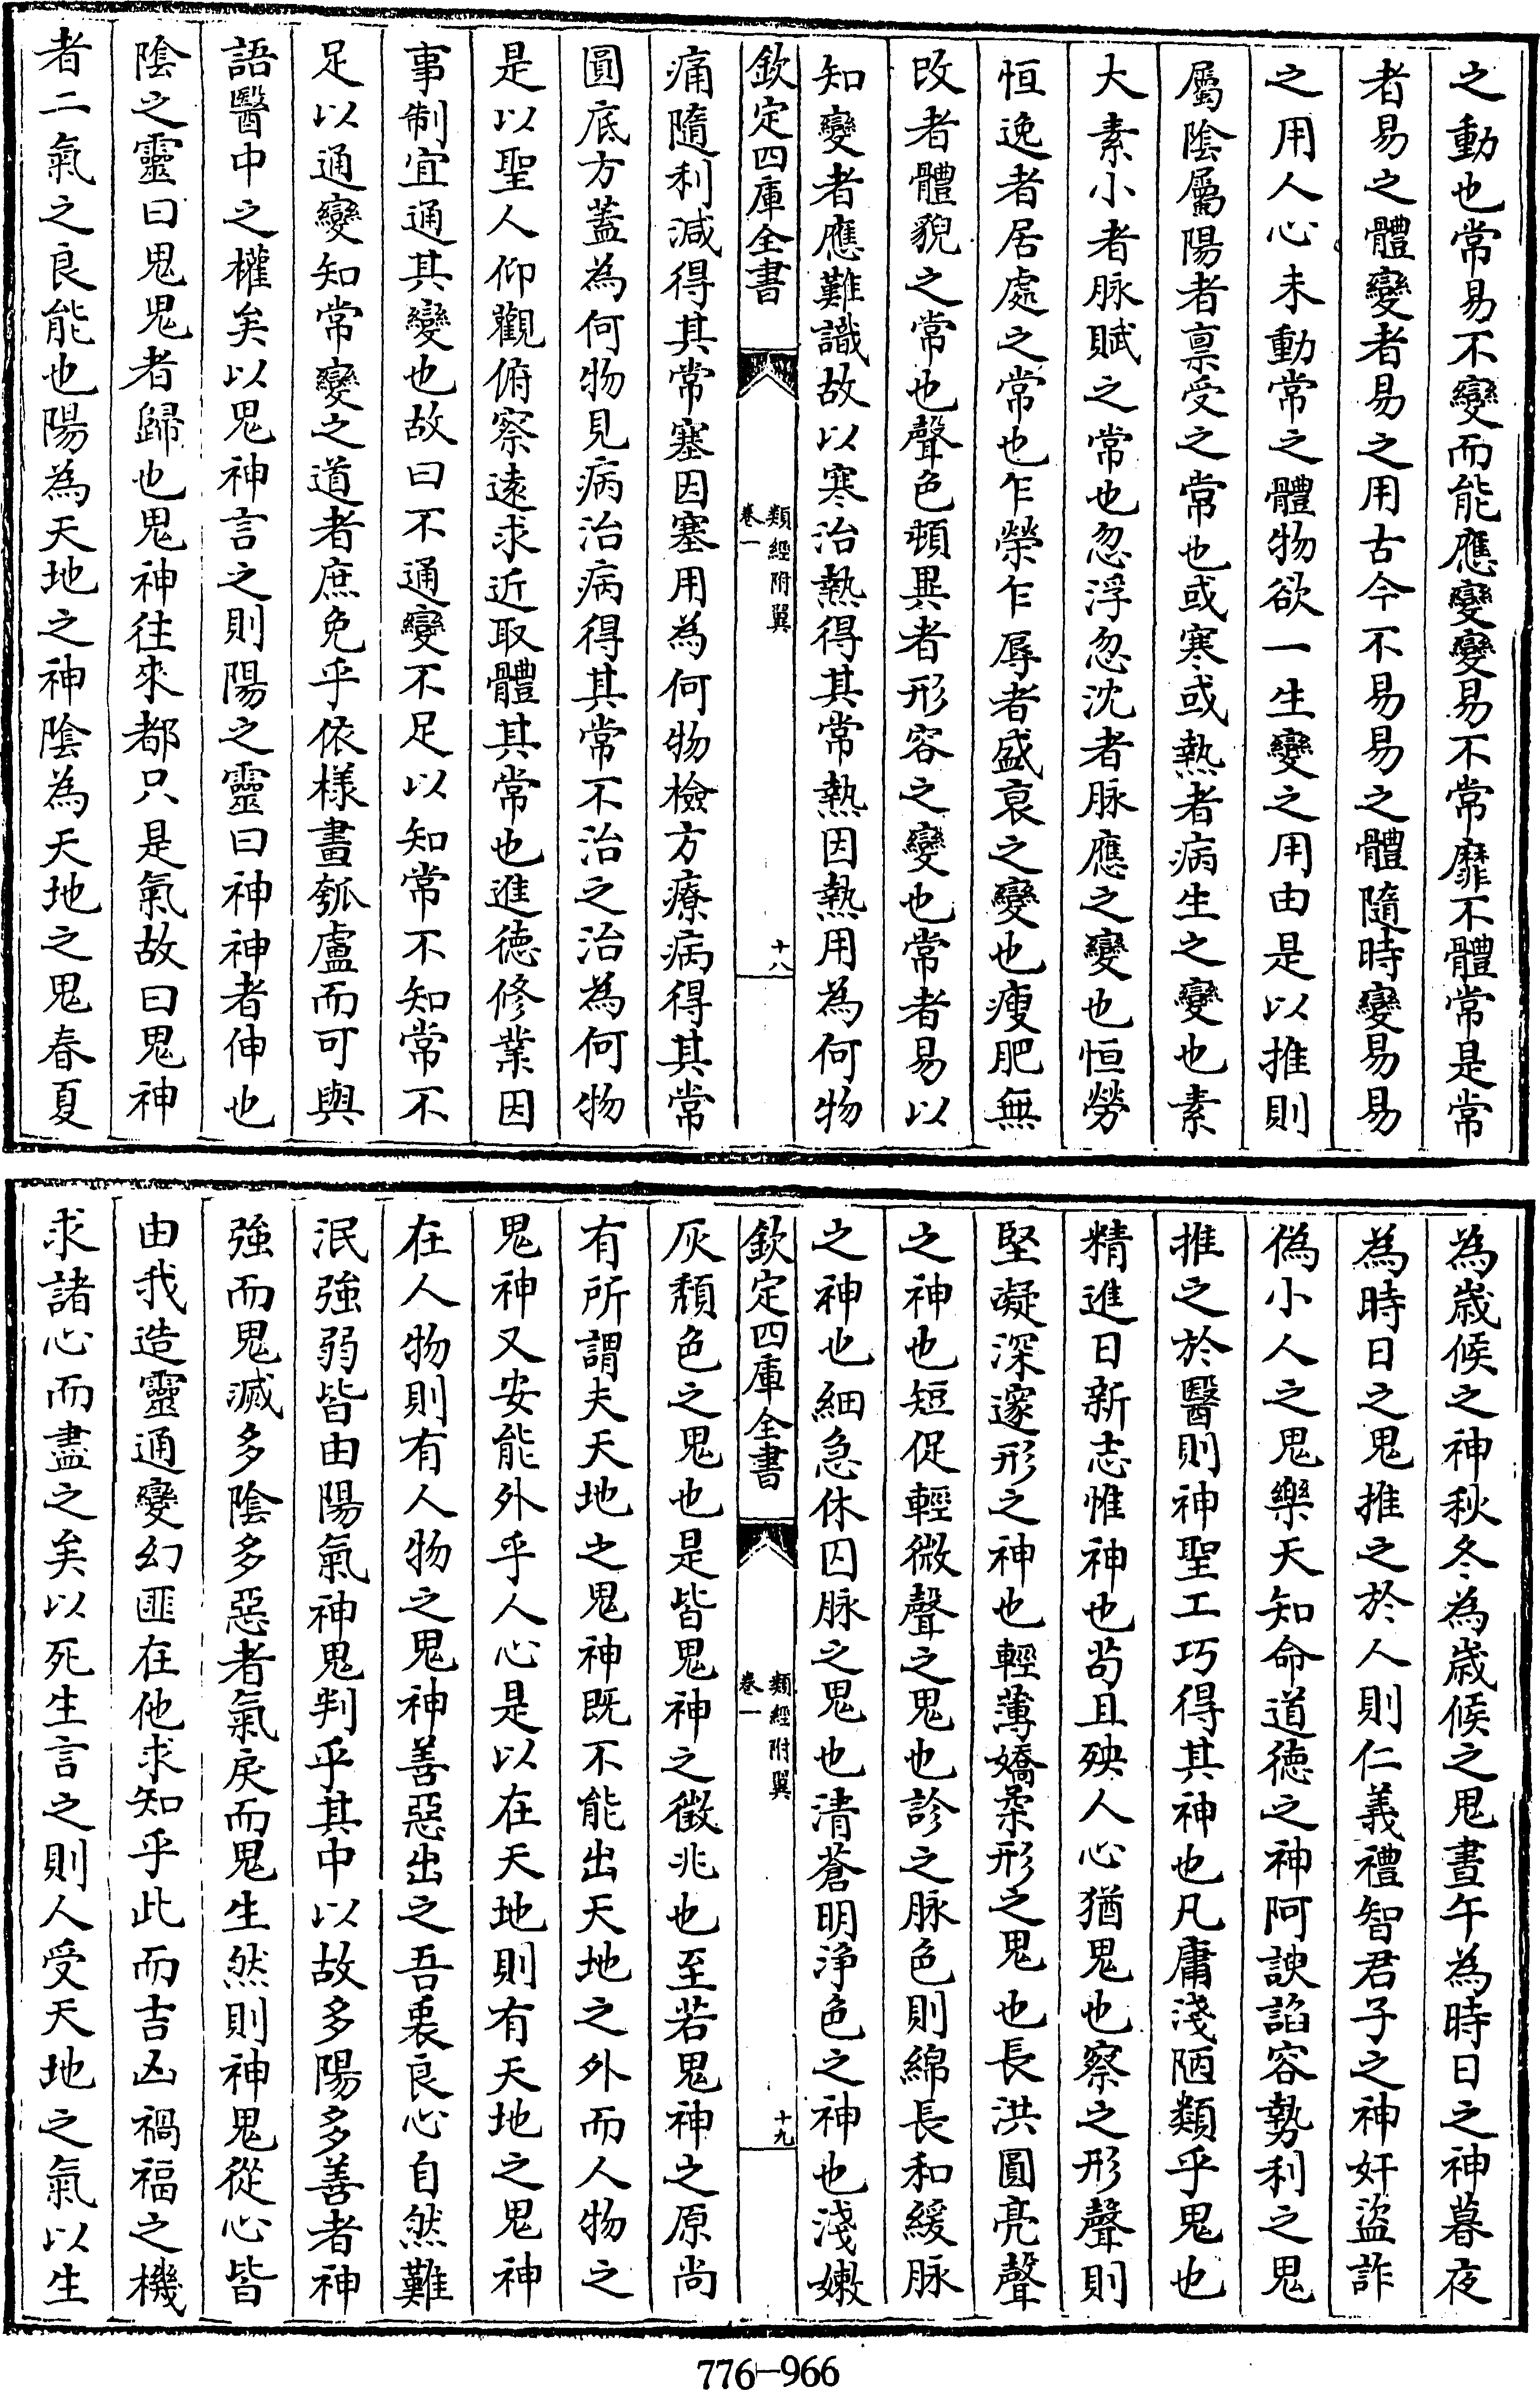 之動也常易不變而能應變變易不常靡不體常是常
者易之體變者易之用古今不易易之體隨時變易易
之用人心未動常之體物欲一生變之用由是以推則
屬陰屬陽者禀受之常也或寒或熱者病生之變也素
大素小者脉賦之常也忽浮忽沈者脉應之變也恒勞
恒逸者居處之常也乍榮乍辱者盛衰之變也瘦肥無
改者體貌之常也聲色頓異者形容之變也常者易以
知變者應難識故以寒治熱得其常熱因熱用為何物
欽定四庫全書
類經附翼
卷一
十八
痛隨利減得其常塞因塞用為何物檢方療病得其常
圓底方蓋為何物見病治病得其常不治之治為何物
是以聖人仰觀俯察遠求近取體其常也進德修業因
事制宜通其變也故曰不通變不足以知常不知常不
足以通變知常變之道者庶免乎依樣畫瓠盧而可與
語醫中之權矣以鬼神言之則陽之靈曰神神者伸也
陰之靈曰鬼鬼者歸也鬼神往來都只是氣故曰鬼神
者二氣之良能也陽為天地之神陰為天地之鬼春夏
為歲候之神秋冬為歲候之鬼晝午為時日之神暮夜
為時日之鬼推之於人則仁義禮智君子之神奸盜詐
偽小人之鬼樂天知命道德之神阿諛諂容勢利之鬼
推之於醫則神聖工巧得其神也凡庸淺陋類乎鬼也
精進日新志惟神也茍且殃人心猶鬼也察之形聲則
堅凝深邃形之神也輕薄嬌柔形之鬼也長洪圓亮聲
之神也短促輕微聲之鬼也診之脉色則綿長和緩脉
之神也細急休囚脉之鬼也清蒼明淨色之神也淺嫩
欽定四庫全書
類經附翼
卷一
十九
灰頹色之鬼也是皆鬼神之徵兆也至若鬼神之原尚
有所謂夫天地之鬼神既不能出天地之外而人物之
鬼神又安能外乎人心是以在天地則有天地之鬼神
在人物則有人物之鬼神善惡出之吾裏良心自然難
泯強弱皆由陽氣神鬼判乎其中以故多陽多善者神
強而鬼滅多陰多惡者氣戾而鬼生然則神鬼從心皆
由我造靈通變幻匪在他求知乎此而吉凶禍福之機
求諸心而盡之矣以死生言之則人受天地之氣以生
776-966